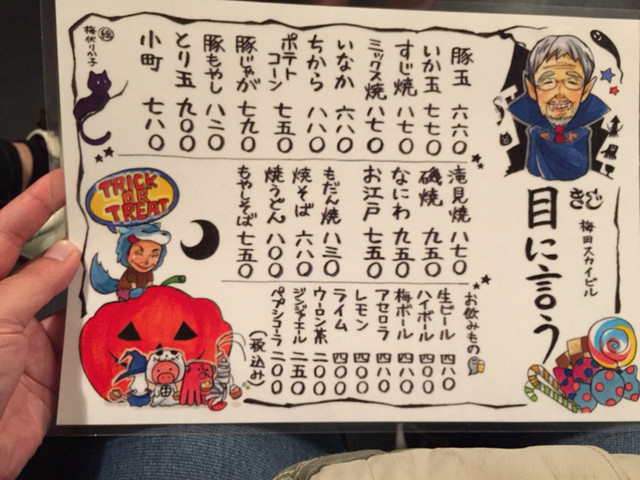 きじ
梅田スカイビル
目に言う
豚玉 六六〇
いか玉 七七〇
すじ焼 八七〇
ミックス焼 八七〇
いなか 六八〇
ちから 八八〇
ポテトコーン 七五〇
豚じゃが 七九〇
豚もやし 八二〇
とり玉 九〇〇
小町 七八〇
滝見焼 八七〇
磯焼 九五〇
なにわ 九五〇
お江戸 七五〇
もだん焼 八三〇
焼そば 六八〇
焼うどん 八〇〇
もやしそば 七五〇
お飲みもの
生ビール 四八〇
ハイボール 四〇〇
梅ボール 四八〇
アセロラ 四八〇
レモン 四〇〇
ライム 四〇〇
ウーロン茶 二〇〇
ジンジャエール 二五〇
ペプシコーラ 二〇〇
(税込み)
TRICK
OR
TREAT
絵
梅伏りか子